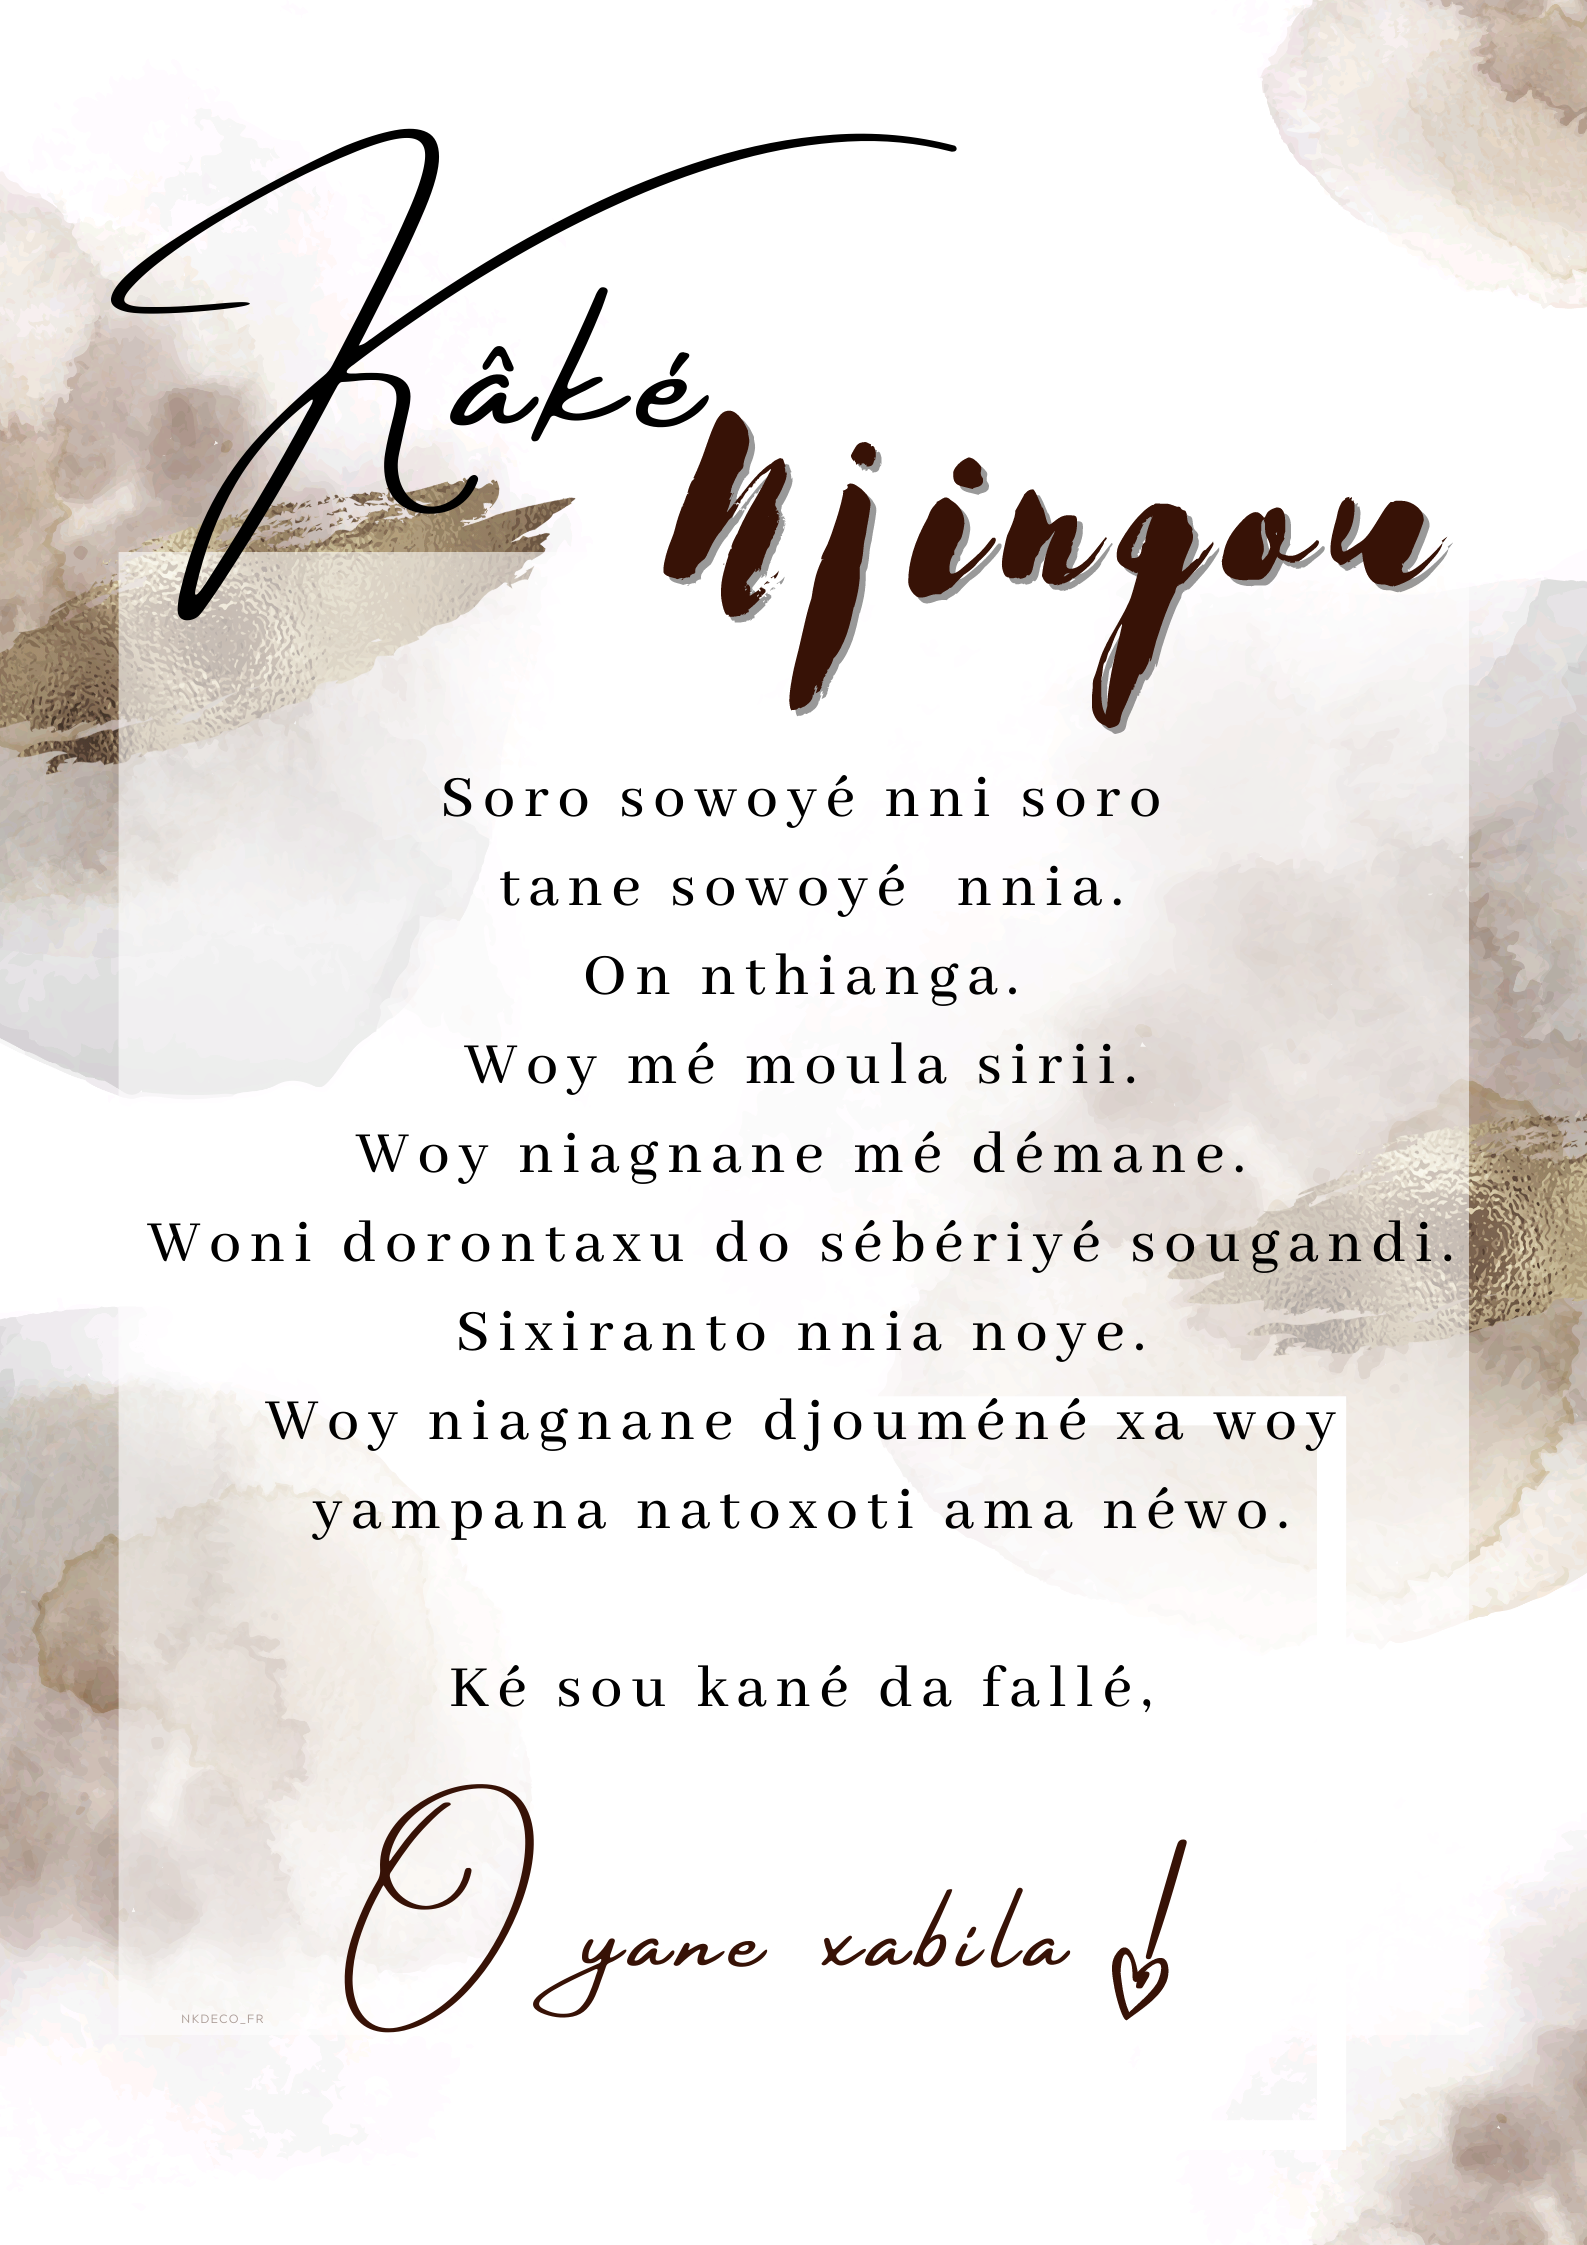 Kâké
Njingou
Soro sowoyé nni soro
tane sowoyé nnia.
On nthianga.
Woy mé moula sirii.
Woy niagnane mé démane.
Woni dorontaxu do sébériyé sougandi.
Sixiranto nnia noye.
Woy niagnane djouméné xa woy
yampana natoxoti ama néwo.
Ké sou kané da fallé,
O yane xabila !
NKDECO_FR